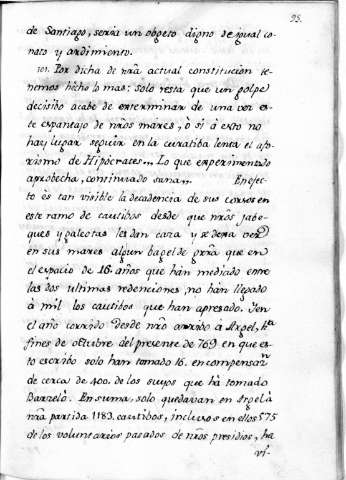 95.
de Santiago, seria un objeto digno de igual co-
nato y ardimiento.
101. Por dicha de nrã actual constitucion te-
nemos hecho lo mas: solo resta que un golpe
decisibo acabe de exterminar de una vez es-
te espantajo de nrõs mares, ò si à exto no
hay lugar seguir en la curatiba lenta el afo-
rismo de Hipòcrates... Lo que experimentado
aprobecha, continuado sana... En efec-
to es tan visible la decadencia de sus corsos en
este ramo de cautibos desde que nrõs jabe-
ques y galeotas les dan caza y se dexa ver
en sus mares algun bagel de grrã que en
el espacio de 16 años que han mediado entre
las dos ultimas redenciones, no han llegado
à mil los cautibos que han apresado. Y en
el año corrido desde nrõ arribo à Argel, hta
fines de octubre del presente de 769 en que es-
to escribo solo han tomado 16. en compensazn
de cerca de 400. de los suyos que hà tomado
Barzelò. En suma, solo quedavan en Argel à
nrã partida 1183. cautibos, inclusos en ellos 575
de los voluntarios pasados de nrõs presidios, ha